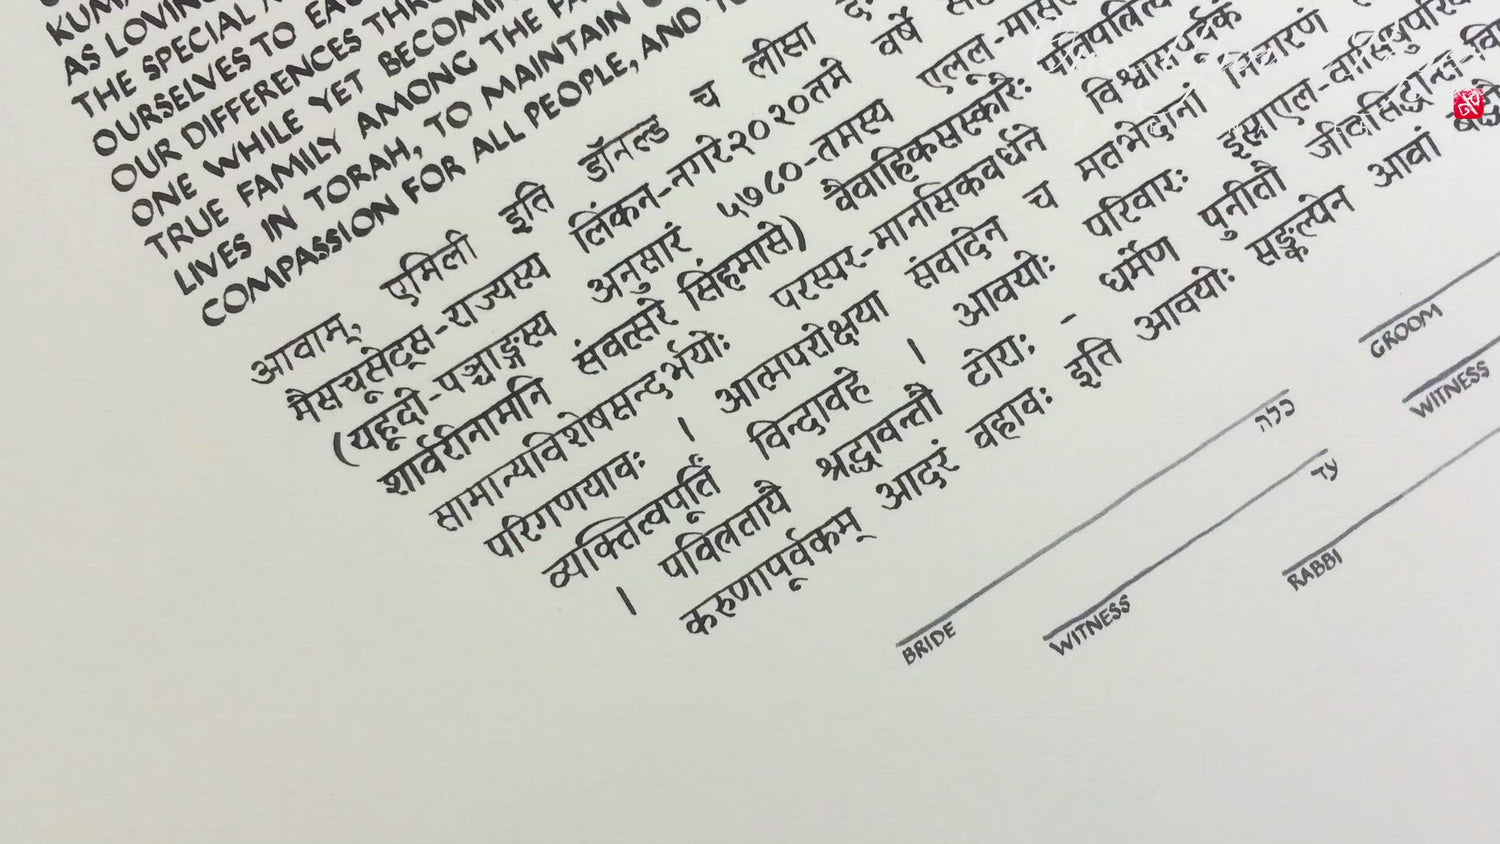 KUM
AS LOVING
THE SPECIAL
OURSELVES TO EAC
OUR DIFFERENCES THR
ONE WHILE YET BECOMIN
TRUE FAMILY AMONG THE FA
LIVES IN TORAH, TO MAINTAIN
COMPASSION FOR ALL PEOPLE, AND TO
आवाम्, एमिली इति डॉनल्ड च लीसा
मैसचूसेट्स-राज्यस्य लिंकन-नगरे २०२०तमे वर्षे
(यहूदी-पञ्चाङ्गस्य अनुसारं ५७८०-तमस्य एलूल-मास
शार्वरीनामनि संवत्सरे सिंहमासे) वैवाहिकसंस्कारैः
सामान्यविशेषसन्दर्भयोः परस्पर-मानसिकवर्धने विश्वासपूर्वकं
परिगणयावः । आत्मपरोक्षया संवादेन च मतभेदानां निवारणं
व्यक्तित्वपूर्तिं विन्दावहे । आवयोः परिवारः इस्राएल-वासिषुपरि
। पवित्रतायै श्रद्धावन्तौ टोराः - धर्मेण पुनीतौ जीवसिद्धान्त-वि
करुणापूर्वकम् आदरं वहावः इति आवयोः सङ्कल्पेन आवां
BRIDE כלה
GROOM
WITNESS עד
WITNESS
RABBI